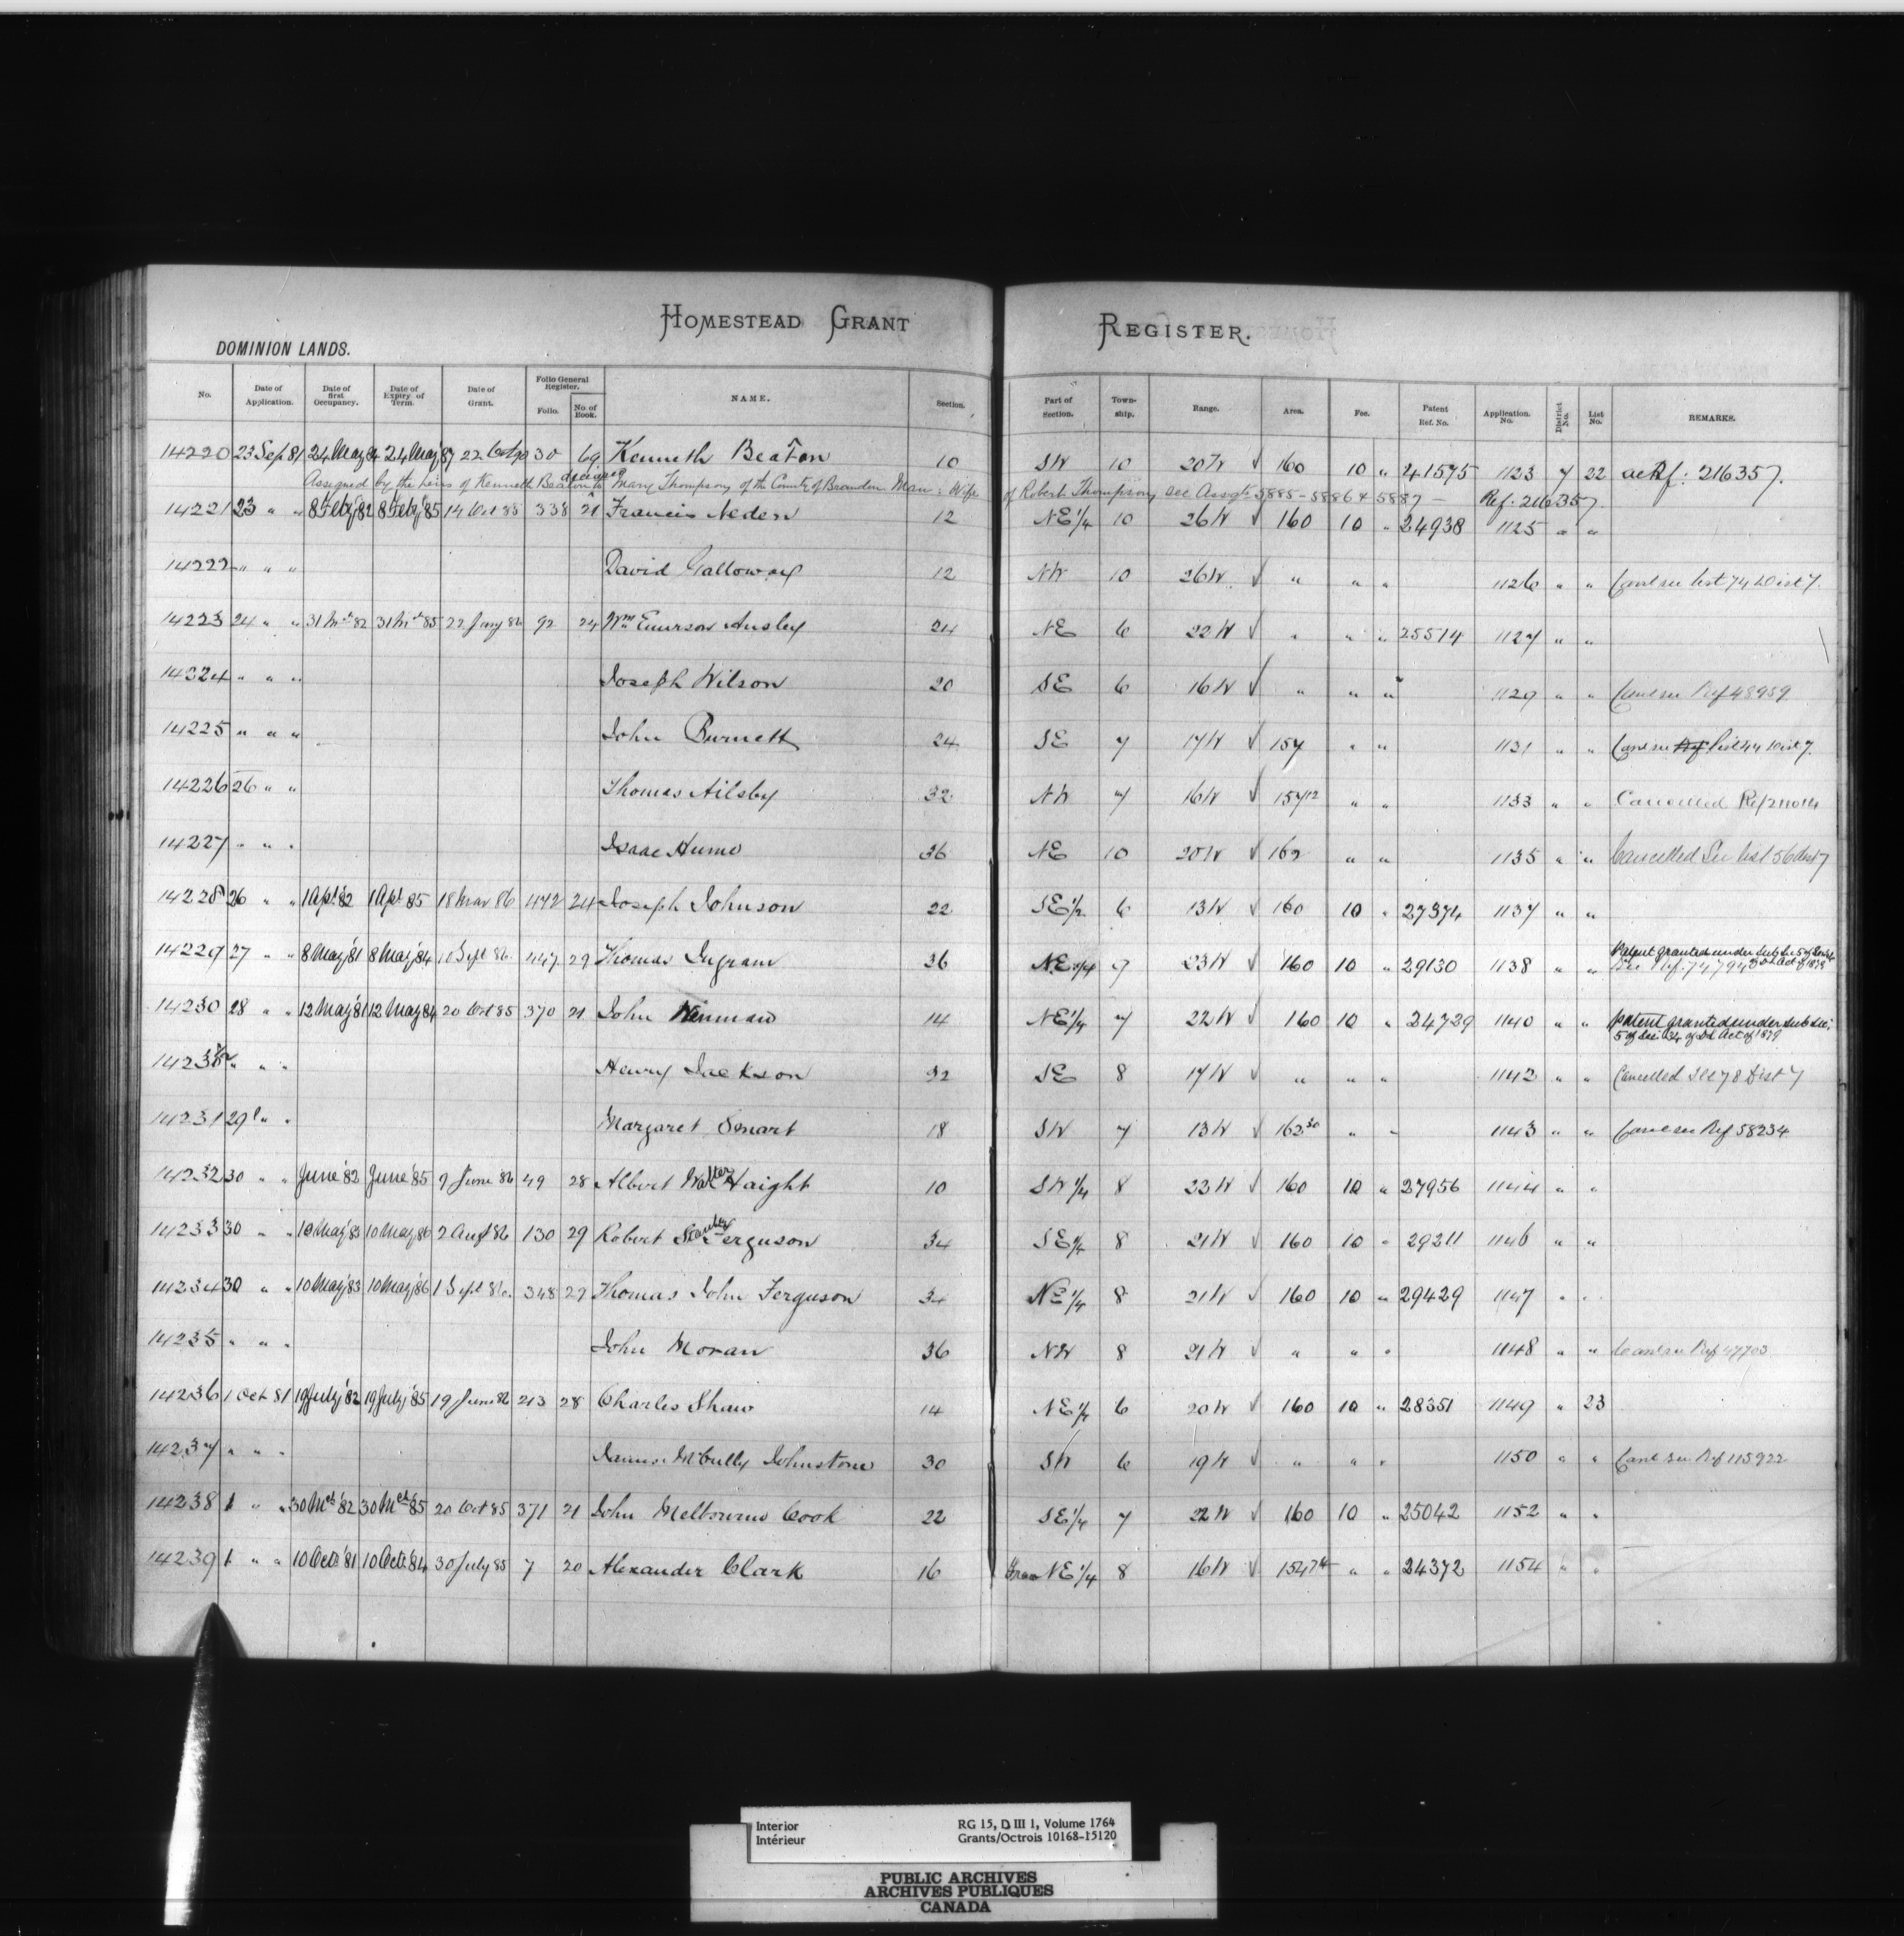 HOMESTEAD GRANT REGISTER.
DOMINION LANDS.
No. Date of Application. Date of first Occupancy. Date of Expiry of Term. Date of Grant. Folio General Register. Folio. No. of Book. NAME. Section. Part of Section. Township. Range. Area. Fee. Patent Ref. No. Application. No. District No. List No. REMARKS.
14220 23 Sep 81 24 May 84 24 May 87 22 Oct 90 30 69 Kenneth Beaton 10 SW 10 20W √ 160 10 " 41575 1123 7 22 Ref: 216357.
Assigned by the heirs of Kenneth Beaton deceased to Mary Thompson of the County of Brandon Man: Wife of Robert Thompson, see Assgts 5885 - 5886 & 5887 - Ref. 216357.
14221 23 " " 8 Feby '82 8 Feby '85 14 Oct 85 338 21 Francis Neden 12 NE 1/4 10 26W √ 160 10 " 24938 1125 " "
14222 " " " David Galloway 12 NW 10 26W √ " " " 1126 " " Canl see list 74 Dist 7.
14223 24 " " 31 Mch 82 31 Mch 85 22 Jany 86 92 24 Wm Emerson Ansley 24 NE 6 22W √ " " " 25514 1127 " "
14224 " " " Joseph Wilson 20 SE 6 16W √ " " " 1129 " " Canl see Ref 48959
14225 " " " John Burnett 24 SE 7 17W √ 157 " " 1131 " " Canl see Ref list 44 Dist 7.
14226 26 " " Thomas Ailsby 32 NW 7 16W √ 157 12 " " 1133 " " Cancelled Ref 211014
14227 " " " Isaac Hume 36 NE 10 20W √ 162 " " 1135 " " Cancelled See list 56 Dist 7
14228 26 " " 1 Apl '82 1 Apl 85 18 Mar 86 472 24 Joseph Johnson 22 SE 1/2 6 13W √ 160 10 " 27374 1137 " "
14229 27 " " 8 May '81 8 May '84 10 Sept 86. 447 29 Thomas Ingram 36 NE 1/4 9 23W √ 160 10 " 29130 1138 " " Patent granted under Sub Sec 5 of Sec 34 of DL Act of 1879 See Ref. 74794
14230 28 " " 12 May '81 12 May 84 20 Oct 85 370 21 John 14 NE 1/4 7 22W √ 160 10 " 24729 1140 " " Patent granted under Sub Sec: 5 of Sec: 34 of DL Act of 1879
14230 1/2 " " " Henry Jackson 32 SE 8 17W √ " " " 1142 " " Cancelled See 78 Dist 7
14231 29 " " Margaret Smart 18 SW 7 13W √ 162 30 " " 1143 " " Canl see Ref 58234
14232 30 " " June '82 June '85 9 June 86 49 28 Albert Walter Haight 10 SW 1/4 8 23W √ 160 10 " 27956 1144 " "
14233 30 " " 10 May '83 10 May '86 2 Augt 86 130 29 Robert Stanley Ferguson 34 SE 1/4 8 21W √ 160 10 " 29211 1146 " "
14234 30 " " 10 May '83 10 May '86 1 Sept 86. 348 29 Thomas John Ferguson 34 NE 1/4 8 21W √ 160 10 " 29429 1147 " "
14235 " " " John Moran 36 NW 8 21W √ " " " 1148 " " Canl see Ref 47703
14236 1 Oct 81 19 July '82 19 July '85 19 June 86 213 28 Charles Shaw 14 NE 1/4 6 20W √ 160 10 " 28351 1149 " 23
14237 " " " James McCully Johnstone 30 SW 6 19W √ " " " 1150 " " Canl see Ref 115922
14238 1 " " 30 Mch '82 30 Mch 85 20 Oct 85 371 21 John Melbourne Cook 22 SE 1/4 7 22W √ 160 10 " 25042 1152 " "
14239 1 " " 10 Octr '81 10 Octr '84 30 July 85 7 20 Alexander Clark 16 Frac NE 1/4 8 16W √ 154 74 " " 24372 1154 " "
Interior RG 15, D III 1, Volume 1764
Intérieur Grants/Octrois 10168-15120
PUBLIC ARCHIVES
ARCHIVES PUBLIQUES
CANADA